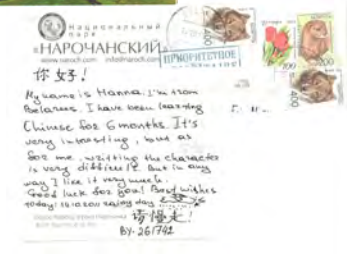 Национальный
парк
«НАРОЧАНСКИЙ»
ПРИОРИТЕТНОЕ
400
200
100
400
你好!
My name is Hanna. I'm from
Belarus. I have been learning
Chinese for 6 months. It's
very interesting, but as
for me, writting the character
is very difficult. But in any
way I like it very much.
Good luck for you! Best wishes
today! rainy day
请慢走!
BY-261742